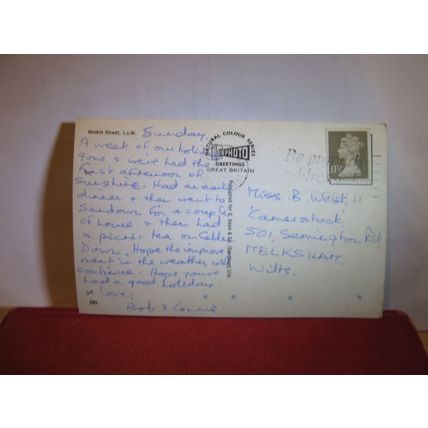 Winkle Street, I.o.W.
Sunday.
A week of our holiday
gone & we've had the
first afternoon of
Sunshine. Had an early
dinner & then went to
Sandown for a couple
of hours & then had
a picnic tea on Culver
Down. Hope the improve
ment in the weather will
continue. Hope you've
had a good holiday
Love,
NATURAL COLOUR SERIES
PHOTO
GREETINGS
GREAT BRITAIN
Published by
Ltd.
Be
Miss B. West,
501, Semington Rd,
MELKSHAM,
Wilts.